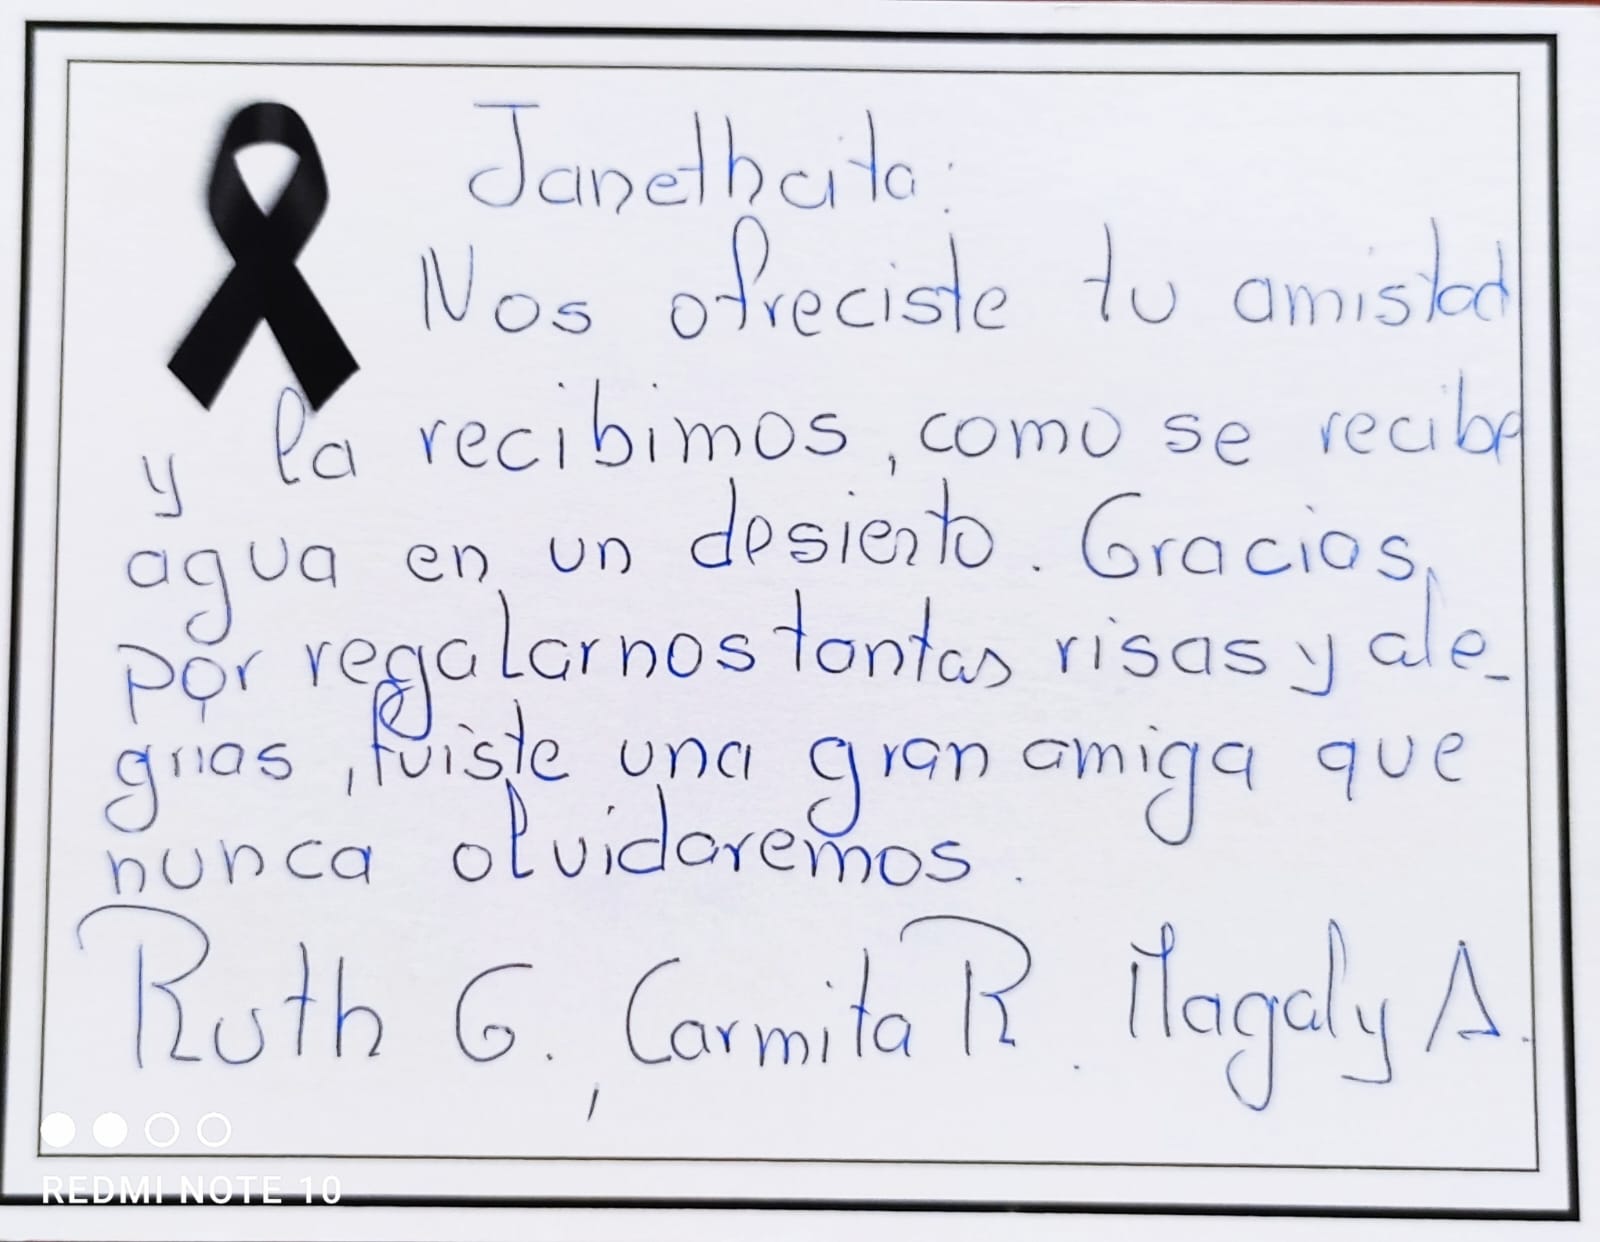 Janethcita:
Nos ofreciste tu amistad
y la recibimos, como se recibe
agua en un desierto. Gracias,
por regalarnos tantas risas y ale_
grias, fuiste una gran amiga que
nunca olvidaremos.
Ruth G., Carmita R. Magaly A.
REDMI NOTE 10